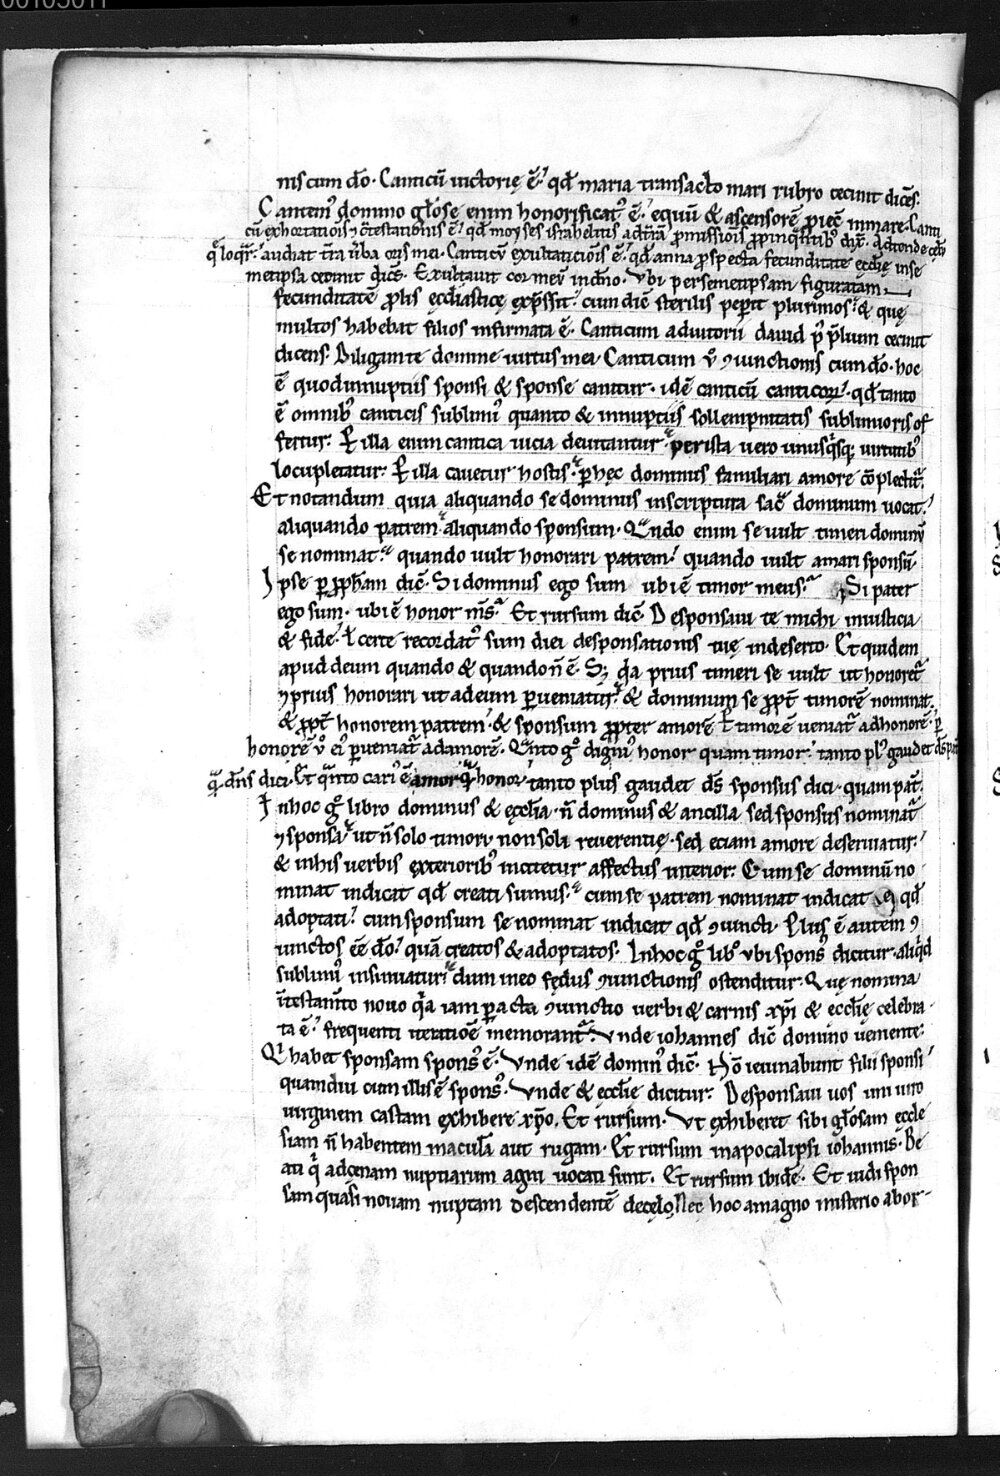 niscum dō. Canticū uictorię ē. qđ maria transacto mari rubro cecinit dicēs.
Cantem᷒ domino glōse enim honorificat᷒ ē. equū & ascensorē ꝓiec̄ inmare. Canti
cū exhortatiōis & ↄtestationis ē. qđ moyses israhelitis ad t̄rā ꝓmissiōis ꝓpinq̄ntib᷒ dix̄. Adtende cęlū
q̄ loq̄r. audiat t̄ra ūba oris mei. Canticū exultatiōis ē. qđ anna ꝓspecta fecunditate ęcclię inse
metipsa cecinit dicēs. Exultauit cor meū indn̄o. Vbi persemetipsam figuratam
fecunditatē ꝓlis ęcclīasticę exp̄ssit. cum dic̄ sterilis pep̄it plurimos. & quę
multos habebat filios infirmata ē. Canticum adiutorii dauid p᷒ p̄lium cecinit
dicens. Diligam te domine uirtus mea. Canticum v̄ ↄiunctionis cum dō. hoc
ē quod innuptiis sponsi & sponse canitur. idē canticū canticoꝝ. qđ tanto
ē omnib᷒ canticis sublimi᷒ quanto & innuptiis sollempnitatis sublimioris of
fertur. P̱ illa enim cantica uicia deuitantur. per ista uero unusq̄sq; uirtutib᷒
locupletatur. P̱ illa cauetur hostis. ꝑ hęc dominus familiari amore cōplectit̄.
Et notandum quia aliquando se dominus inscriptura sac̄ dominum uocat.
aliquando patrem aliquando sponsum. Qn̄do enim se uult timeri dominū
se nominat. quando uult honorari patrem. quando uult amari sponsū.
Ipse ꝑ ꝓph̄am dic̄. Si dominus ego sum ubi ē timor meus. & Si pater
ego sum. ubi ē honor m̄s. Et rursum dic̄. Desponsaui te michi iniusticia
& fide. ł certe recordat᷒ sum diei desponsationis tuę indeserto. Et quidem
apud deum quando & quando n̄ ē. S; q̄a prius timeri se uult ut honoret᷒
& prius honorari ut adeum ꝑueniatur. & dominum se ꝓpt̄ timorē nominat.
& ꝓpt̄ honorem patrem. & sponsum ꝓpter amorē. ut ꝑ timorē ueniat᷒ adhonorē. ꝑ
honorē v̄ ei᷒ ꝑueniat᷒ adamorē. Qn̄to ḡ digni᷒ honor quam timor. tanto pl᷒ gaudet ds̄ pat̄
q̄ dn̄s dici. Et qn̄to cari᷒ ē amor q̄ honor tanto plus gaudet ds̄ sponsus dici. quam pat̄.
Inhoc ḡ libro dominus & ęcclīa. n̄ dominus & ancilla sed sponsus nominat᷒
& sponsa. ut n̄ solo timori non soli reuerentię. sed eciam amore deseruiatur.
& inhis uerbis exterioribz incitetur affectus interior. Cum se dominū no
minat indicat qđ creati sumus. cum se patrem nominat indicat qđ
adoptati. cum sponsum se nominat indicat qđ ↄiuncti. Plus ē autem ↄ
iunctos eē dō. quā creatos & adoptatos. Inhoc ḡ lib᷒ ubi spons᷒ dicitur. aliq̄d
sublimi᷒ insinuatur. dum ineo fędus ↄiunctionis ostenditur. Quę nomina
ītestam̄to nouo q̄a iam ꝑacta ↄiunctio uerbi & carnis xp̄i & ecclię celebra
ta ē. frequenti iteratiōe memorant᷒. Vnde iohannes dic̄ domino ueniente.
Qi habet sponsam spons᷒ ē. Vnde idē domin᷒ dic̄. Nō ieiunabunt filii sponsi
quamdiu cum illis ē spons᷒. Vnde & ęcclīe dicitur. Desponsaui uos uni uiro
uirginem castam exhibere xp̄o. Et rursum. Vt exhiberet sibi glōsam ęccle
siam n̄ habentem maculā aut rugam. Et rursum inapocalipsi iohannis. Be
ati q̄ adcenam nuptiarum agni uocati sunt. Et rursum ibidē. Et uidi spon
sam quasi nouam nuptam descendentē decęlo. Nec hoc amagno misterio abor-